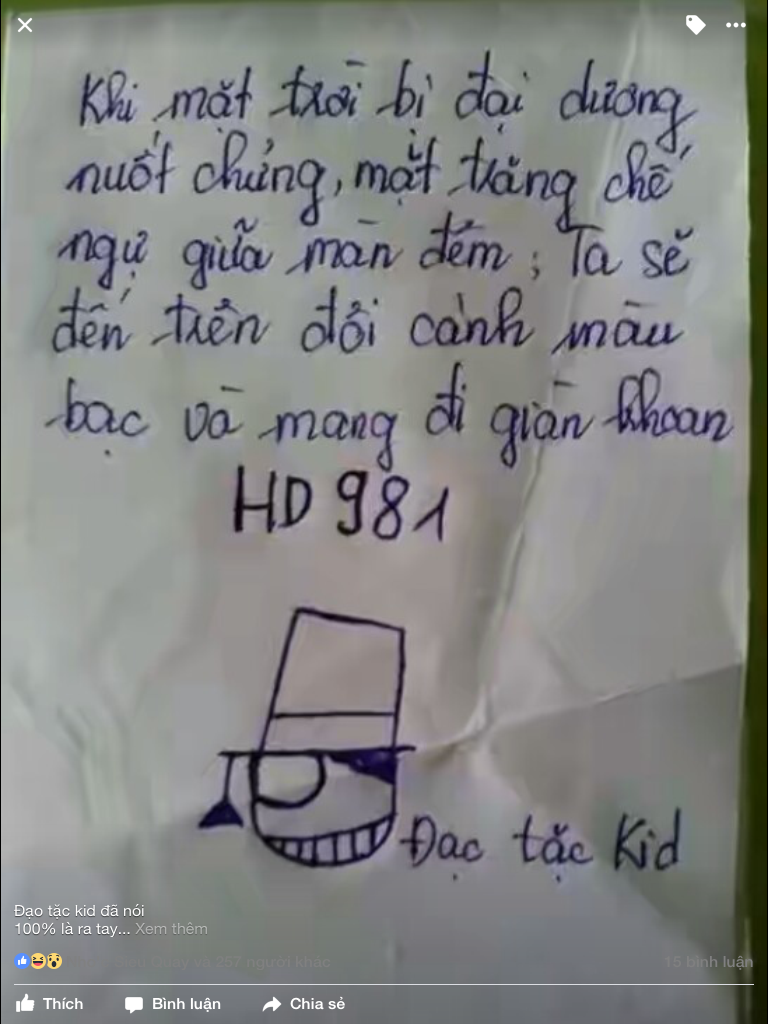 Khi mặt trời bị đại dương
nuốt chửng, mặt trăng chế
ngự giữa màn đêm; Ta sẽ
đến trên đôi cánh màu
bạc và mang đi giàn khoan
HD 981
Đạc tặc Kid
Đạo tặc kid đã nói
100% là ra tay... Xem thêm
và 257 người khác
15 bình luận
Thích
Bình luận
Chia sẻ